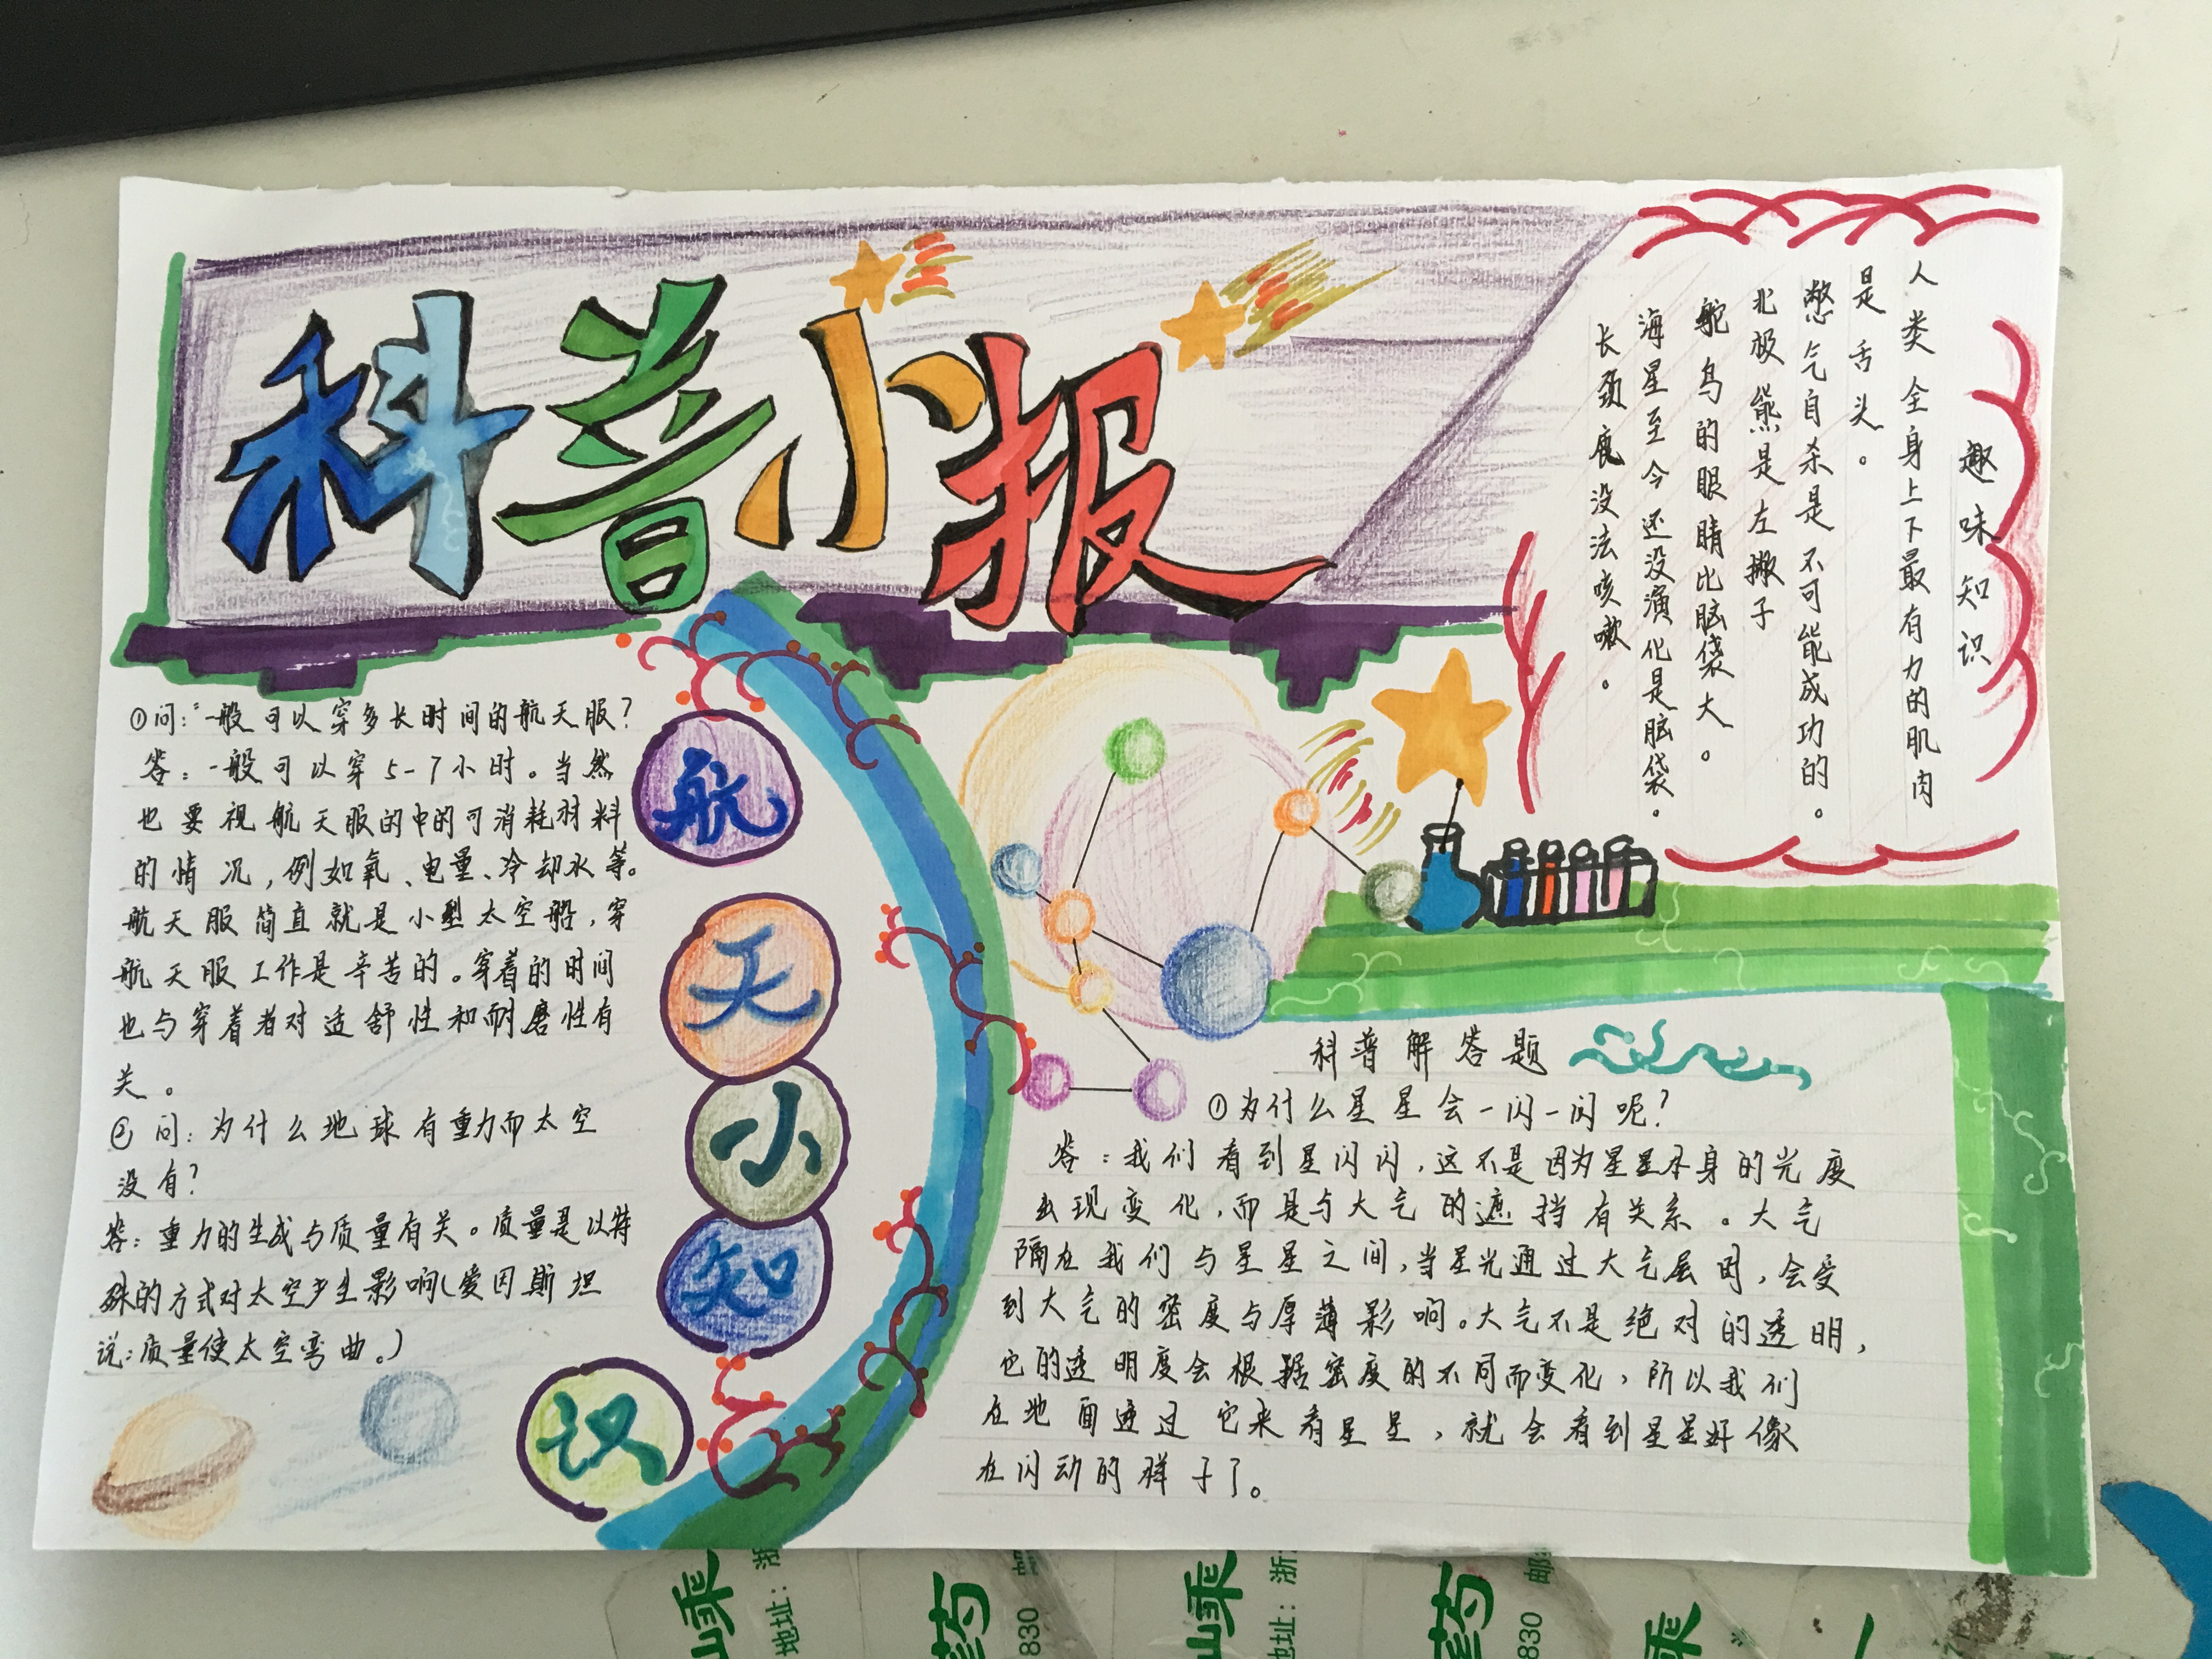 科普小报
趣味知识
人类全身上下最有力的肌肉
是舌头。
憋气自杀是不可能成功的。
北极熊是左撇子
鸵鸟的眼睛比脑袋大。
海星至今还没演化是脑袋。
长颈鹿没法咳嗽。
航天小知识
①问:"一般可以穿多长时间的航天服?
答:一般可以穿5-7小时。当然
也要视航天服的中的可消耗材料
的情况,例如氧、电量、冷却水等。
航天服简直就是小型太空船,穿
航天服工作是辛苦的。穿着的时间
也与穿着者对适舒性和耐磨性有
关。
②问:为什么地球有重力而太空
没有?
答:重力的生成与质量有关。质量是以特
殊的方式对太空产生影响(爱因斯坦
说:质量使太空弯曲。)
科普解答题
①为什么星星会一闪一闪呢?
答:我们看到星闪闪,这不是因为星星本身的光度
出现变化,而是与大气的遮挡有关系。大气
隔在我们与星星之间,当星光通过大气层时,会受
到大气的密度与厚薄影响。大气不是绝对的透明,
它的透明度会根据密度的不同而变化,所以我们
在地面透过它来看星星,就会看到星星好像
在闪动的样子了。
地址:浙
药
830
乘
地址:浙
药
830
邮
乘